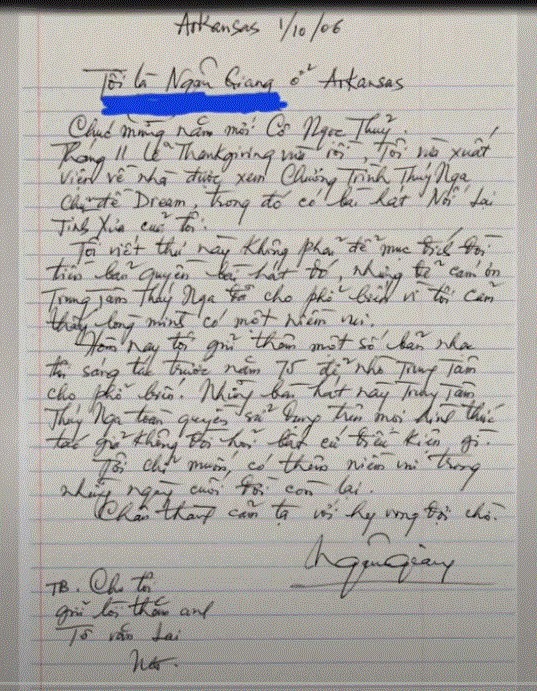 Arkansas 1/10/06
Tôi là Ngân Giang ở Arkansas
Chúc mừng năm mới Cô Ngọc Thuỷ.
Tháng 11 Lễ Thanksgiving vừa rồi, Tôi vừa xuất
viện về nhà được xem Chương Trình Thuý Nga
Chủ đề Dream, trong đó có bài hát Nối Lại
Tình Xưa của tôi.
Tôi viết thư này không phải để mục đích đòi
tiền bản quyền bài hát đó, nhưng để cám ơn
Trung Tâm Thuý Nga đã cho phổ biến vì tôi cảm
thấy lòng mình có một niềm vui.
Hôm nay tôi gửi thêm một số bản nhạc
tôi sáng tác trước năm 75 để nhờ Trung Tâm
cho phổ biến. Những bài hát này Trung Tâm
Thuý Nga toàn quyền sử dụng trên mọi hình thức
tác giả không đòi hỏi bất cứ điều kiện gì.
Tôi chỉ muốn có thêm niềm vui trong
những ngày cuối đời còn lại.
Chân thành cảm tạ với hy vọng đợi chờ.
Ngân Giang
TB. Cho tôi
gửi lời thăm anh
Tô Văn Lai